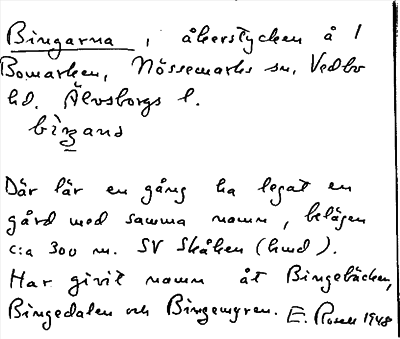 Bingarna, åkerstycken å /
Bomarken, Nössemarks sn, Vedbo
hd. Älvsborgs l.
bìŋana
Där lär en gång ha legat en
gård med samma namn, belägen
c:a 300 m. SV Skåken (hmd).
Har givit namn åt Bingebäcken,
Bingedalen och Bingemyren. E. Rosell 1948